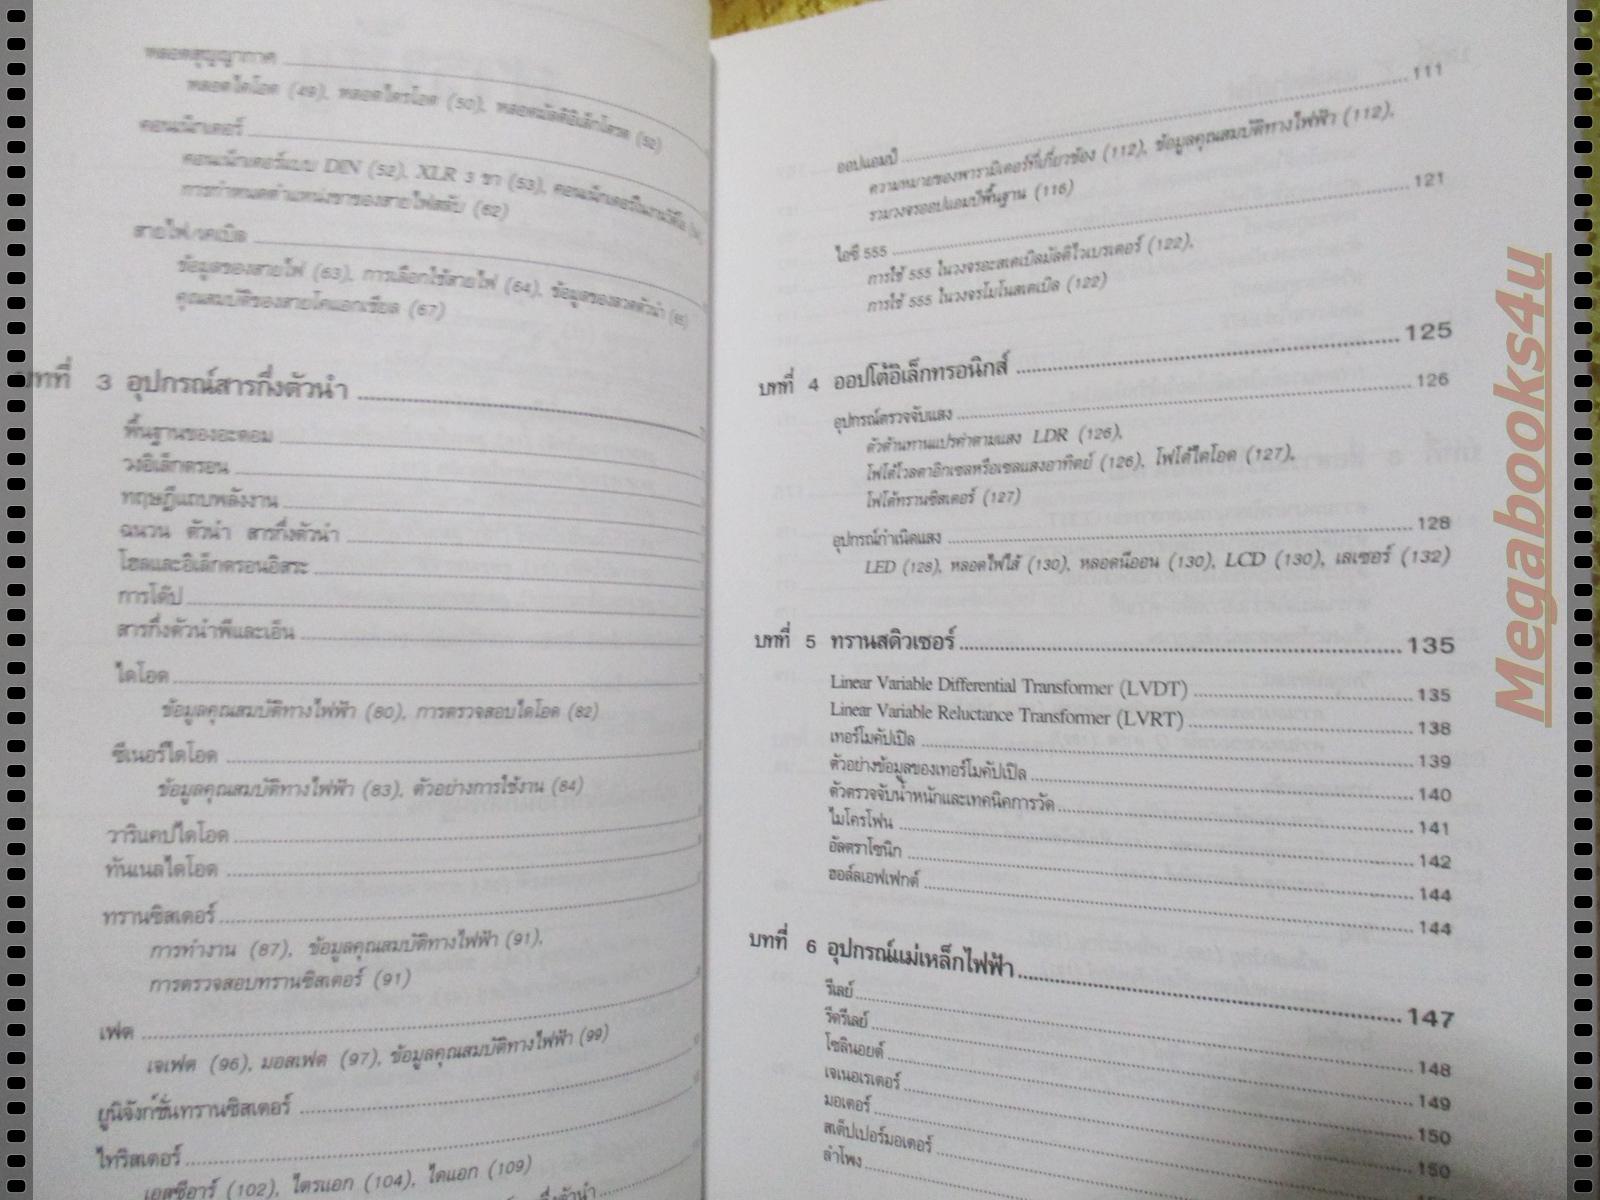 หลอดสุญญากาศ
หลอดไดโอด (49), หลอดไตรโอด (50), หลอดมัลติอิเล็กโตรด (52)
คอนเน็กเตอร์
คอนเน็กเตอร์แบบ DIN (52), XLR 3 ขา (53), คอนเน็กเตอร์ในงานวิดีโอ
การกำหนดตำแหน่งขาของสายไฟสลับ (62)
สายไฟ/เคเบิล
ข้อมูลของสายไฟ (63), การเลือกใช้สายไฟ (64), ข้อมูลของลวดตัวนำ (65)
คุณสมบัติของสายโคแอกเชียล (67)
บทที่ 3 อุปกรณ์สารกึ่งตัวนำ
พื้นฐานของอะตอม
วงอิเล็กตรอน
ทฤษฎีแถบพลังงาน
ฉนวน ตัวนำ สารกึ่งตัวนำ
โฮลและอิเล็กตรอนอิสระ
การโด๊ป
สารกึ่งตัวนำพีและเอ็น
ไดโอด
ข้อมูลคุณสมบัติทางไฟฟ้า (80), การตรวจสอบไดโอด (82)
ซีเนอร์ไดโอด
ข้อมูลคุณสมบัติทางไฟฟ้า (83), ตัวอย่างการใช้งาน (84)
วาริแคปไดโอด
ทันเนลไดโอด
ทรานซิสเตอร์
การทำงาน (87), ข้อมูลคุณสมบัติทางไฟฟ้า (91),
การตรวจสอบทรานซิสเตอร์ (91)
เฟต
เจเฟต (96), มอสเฟต (97), ข้อมูลคุณสมบัติทางไฟฟ้า (99)
ยูนิจังก์ชั่นทรานซิสเตอร์
ไทริสเตอร์
เอสซีอาร์ (102), ไตรแอก (104), ไดแอก (109)
ออปแอมป์ 111
ความหมายของพารามิเตอร์ที่เกี่ยวข้อง (112), ข้อมูลคุณสมบัติทางไฟฟ้า (112),
รวมวงจรออปแอมป์พื้นฐาน (116)
ไอซี 555 121
การใช้ 555 ในวงจรอะสเตเบิลมัลติไวเบรเตอร์ (122),
การใช้ 555 ในวงจรโมโนสเตเบิล (122)
บทที่ 4 ออปโต้อิเล็กทรอนิกส์ 125
อุปกรณ์ตรวจจับแสง 126
ตัวต้านทานแปรค่าตามแสง LDR (126),
โฟโต้โวลตาอิกเซลหรือเซลแสงอาทิตย์ (126), โฟโต้ไดโอด (127),
โฟโต้ทรานซิสเตอร์ (127)
อุปกรณ์กำเนิดแสง 128
LED (128), หลอดไฟไส้ (130), หลอดนีออน (130), LCD (130), เลเซอร์ (132)
บทที่ 5 ทรานสดิวเซอร์ 135
Linear Variable Differential Transformer (LVDT) 135
Linear Variable Reluctance Transformer (LVRT) 138
เทอร์โมคัปเปิล 139
ตัวอย่างข้อมูลของเทอร์โมคัปเปิล 140
ตัวตรวจจับน้ำหนักและเทคนิคการวัด 141
ไมโครโฟน 142
อัลตราโซนิก 144
ฮอล์ลเอฟเฟกต์ 144
บทที่ 6 อุปกรณ์แม่เหล็กไฟฟ้า 147
รีเลย์ 148
รีดรีเลย์ 149
โซลินอยด์ 150
เจเนอเรเตอร์ 150
มอเตอร์
สเต็ปเปอร์มอเตอร์
ลำโพง
Megabooks4u